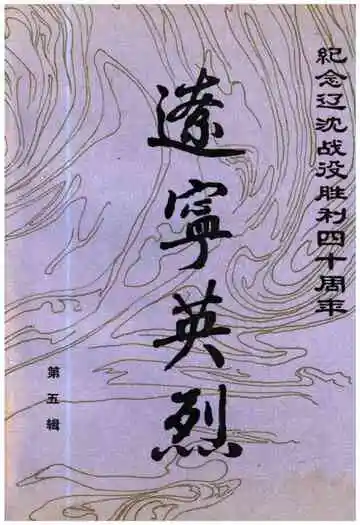 紀念辽沈战役胜利四十周年
遼寧英烈
第五辑